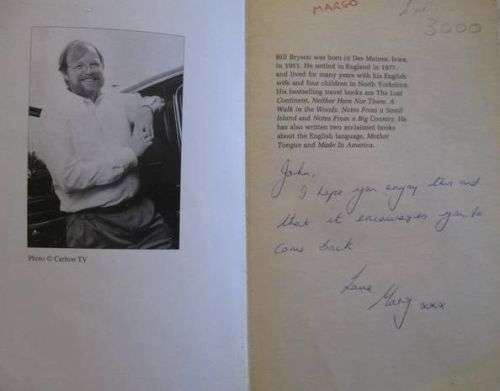 Photo © Carlton TV
MARGO
3000
Bill Bryson was born in Des Moines, Iowa,
in 1951. He settled in England in 1977,
and lived for many years with his English
wife and four children in North Yorkshire.
His bestselling travel books are The Lost
Continent, Neither Here Nor There, A
Walk in the Woods, Notes From a Small
Island and Notes From a Big Country. He
has also written two acclaimed books
about the English language, Mother
Tongue and Made In America.
I hope you enjoy this and
that it encourages you to
come back
Love
xxx